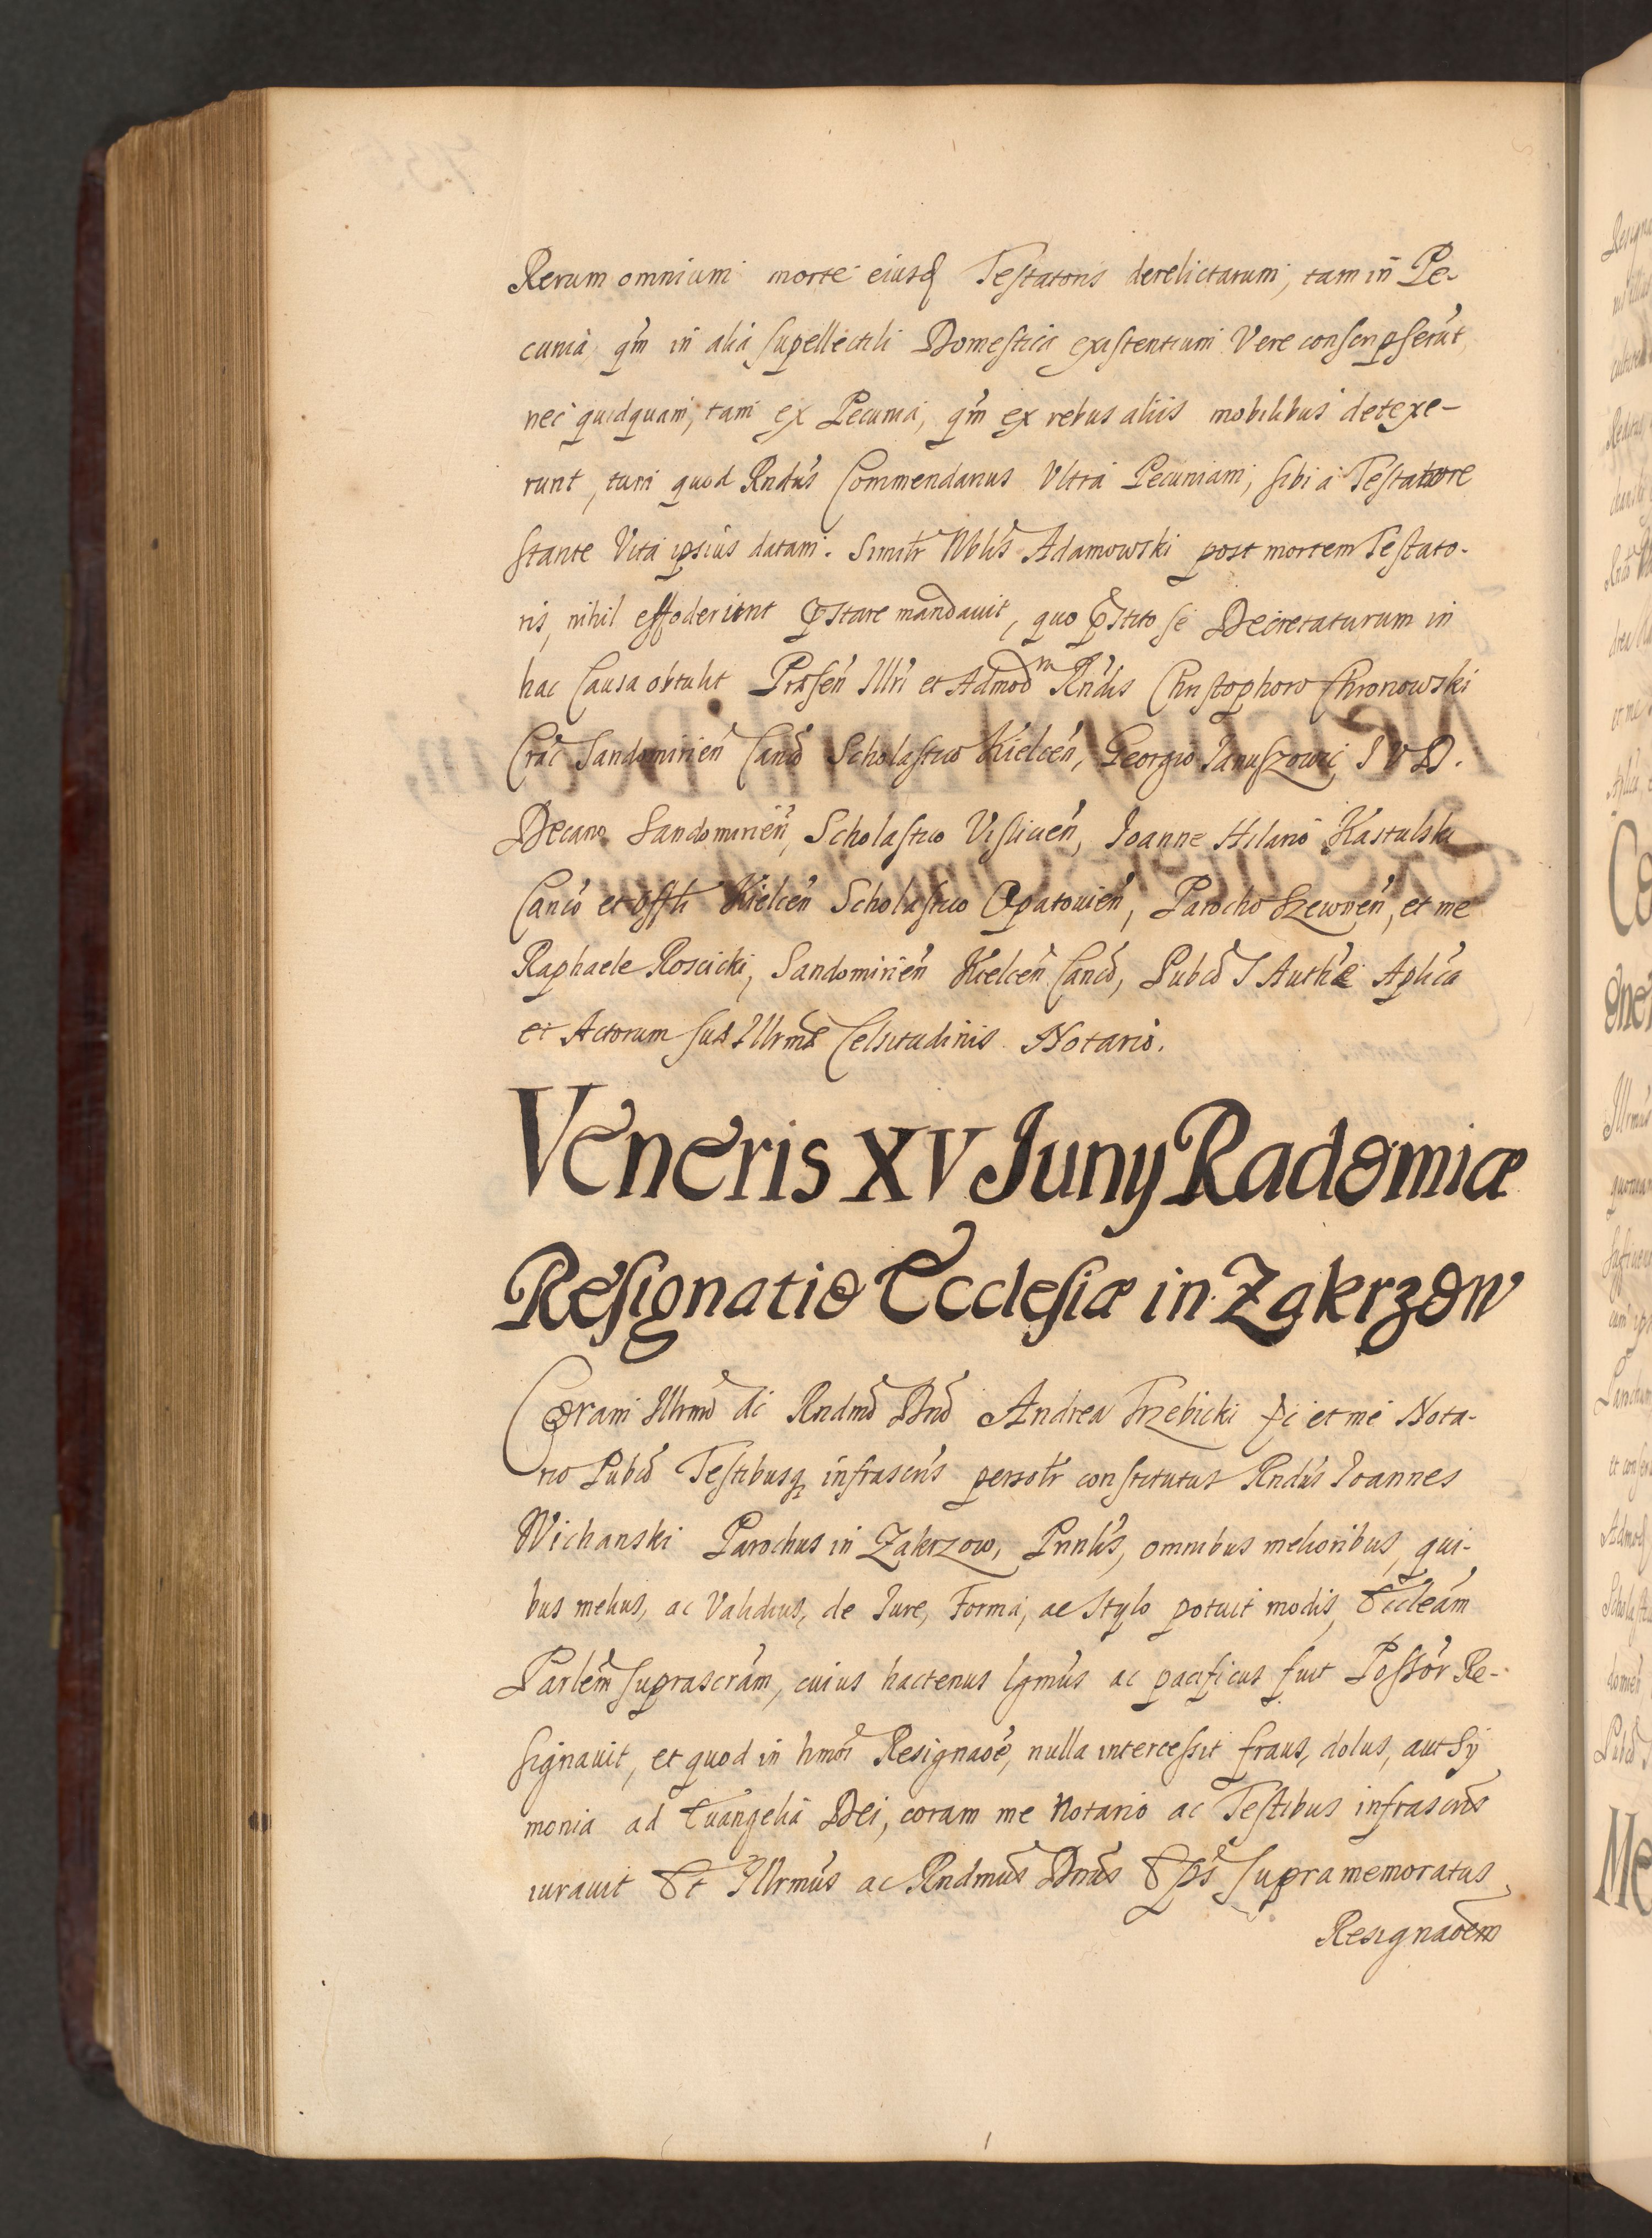 Rerum omnium morte eiusd Testatoris derelictarum, tam in Pe-
cunia qm in alia supellectili Domestica existentium Vere conscripserut,
nec quidquam, tam ex Pecunia, qm ex rebus aliis mobilibus detexe-
runt, tum quod Rndus Commendanus Ultra Pecuniam, sibi a Testatore
stante Vita ipsius datam. Similr Nblis Adamowski post mortem Testato-
ris, nihil effoderiunt pstare mandavit, quo pstito se Decretaturum in
hac Causa obtulit Præsen Illri et Admod m Rndis Christophoro Chronowski
Crac Sandomirien Canco Scholastico Kielcen, Georgio Januszowic, I V D.
Decano Sandomirien, Scholastico Vislicien, Joanne Hilario Kastulski
Canco et Offli Kielcen Scholastico Opatovien, Parocho Szewnen, et me
Raphaele Roscicki, Sandomirien Kielcen Canco, Pubco S Authe Aplica
et Actorum suæ Illrmæ Celsitudinis Notario.
Veneris XV Juny Radomiæ
Resignatio Ecclesiæ in Zakrzow
Coram Illrmo ac Rndmo Dno Andrea Trzebicki &c et me Nota-
rio Pubco Testibusq infrascris persolr constitutus Rndus Joannes
Wichanski Parochus in Zakrzow, Pnnlis, omnibus melioribus, qui-
bus melius, ac Validius, de Jure, Forma, ac Stylo potuit modis, Eccleam
Parlem suprascram, cuius hactenus lgmus ac pacificus fuit Possor Re-
signavit, et quod in hmoi Resignaoe, nulla intercessit fraus, dolus, aut Sy
monia ad Evangelia Dei, coram me Notario ac Testibus infrascris
iuravit Et Illrmus ac Rndmus Dnus Epus supramemoratus
Resignaoem